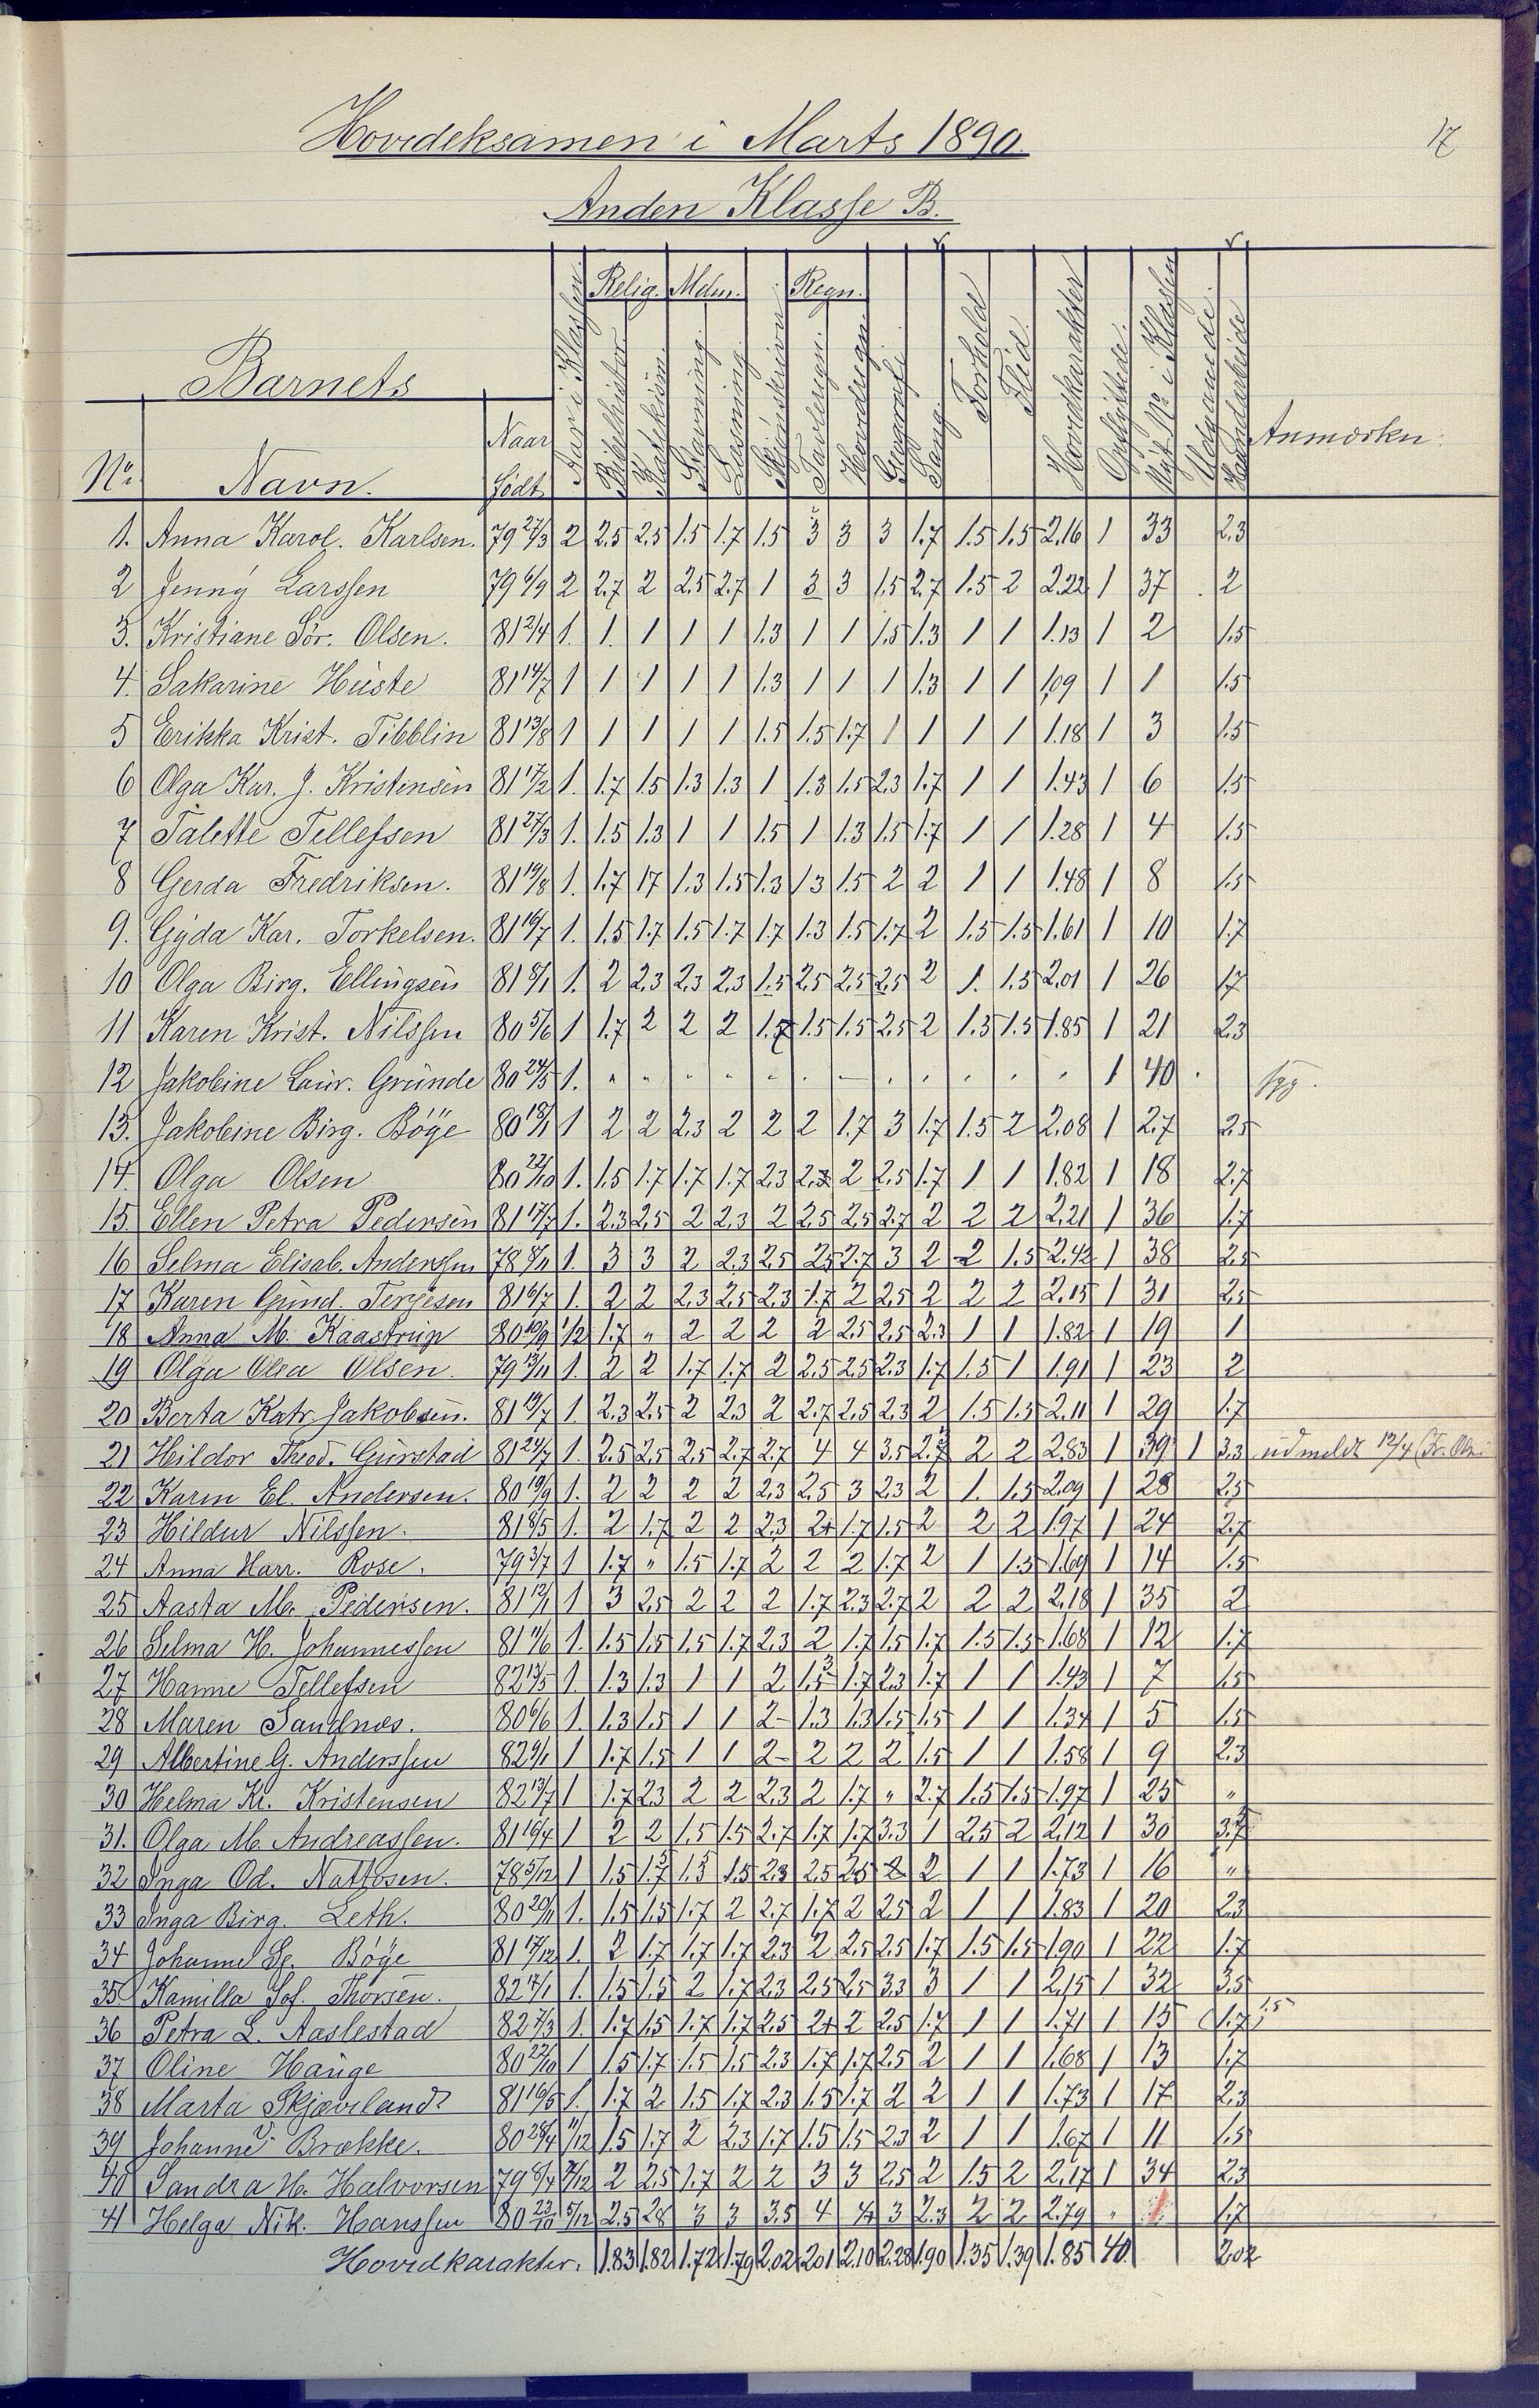 17
Hovedeksamen i Marts 1890.
Anden Klasse B.
Relig. Mdm. Regn.
Barnets
No. Navn. Naar Født Aar i Klassen Bibelhistor Katekism. Stavning Læsning Skjønskrivn Tavleregn. Hovedregn. Geografi Sang Forhold Flid Hovedkarakter Opflyttede. Nyt No i Klassen Udgaaende. Haandarbeide Anmærkn.
1. Anna Karol. Karlsen. 79 27/3 2 2.5 2.5 1.5 1.7 1.5 3 3 3 1.7 1.5 1.5 2.16 1 33 2.3
2 Jenny Larssen 79 6/9 2 2.7 2 2.5 2.7 1 3 3 1.5 2.7 1.5 2 2.22 1 37 2
3. Kristiane Sør. Olsen. 81 2/4 1. 1. 1 1 1 1.3 1 1 1.5 1.3 1 1 1.13 1 2 1.5
4. Sakarine Hüste 81 14/7 1 1 1 1 1 1.3 1 1 1 1.3 1 1 1.09 1 1 1.5
5 Erikka Krist. Tibblin 81 13/8 1 1 1 1 1 1.5 1.5 1.7 1 1 1 1 1.18 1 3 1.5
6 Olga Kar. J. Kristensen 81 17/2 1. 1.7 1.5 1.3 1.3 1 1.3 1.5 2.3 1.7 1 1 1.43 1 6 1.5
7 Talette Tellefsen 81 27/3 1. 1.5 1.3 1 1 1.5 1 1.3 1.5 1.7 1 1 1.28 1 4 1.5
8 Gerda Fredriksen. 81 19/8 1. 1.7 1.7 1.3 1.5 1.3 1.3 1.5 2 2 1 1 1.48 1 8 1.5
9. Gyda Kar. Torkelsen. 81 16/7 1. 1.5 1.7 1.5 1.7 1.7 1.3 1.5 1.7 2 1.5 1.5 1.61 1 10 1.7
10 Olga Birg. Ellingsen 81 8/1 1. 2 2.3 2.3 2.3 1.5 2.5 2.5 2.5 2 1. 1.5 2.01 1 26 1.7
11 Karen Krist. Nilssen 80 5/6 1 1.7 2 2 2 1.7 1.5 1.5 2.5 2 1.3 1.5 1.85 1 21 2.3
12 Jakobine Laur. Grunde 80 24/5 1. 1 40 syg.
13. Jakobine Birg. Böye 80 18/1 1 2 2 2.3 2 2 2 1.7 3 1.7 1.5 2 2.08 1 27 2.5
14. Olga Olsen 80 22/10 1. 1.5 1.7 1.7 1.7 2.3 2.3 2 2.5 1.7 1 1 1.82 1 18 2.7
15. Ellen Petra Pedersen 81 17/7 1. 2.3 2.5 2 2.3 2 2.5 2.5 2.7 2 2 2 2.21 1 36 1.7
16 Selma Elisab. Anderssen 78 8/11 1. 3 3 2 2.3 2.5 2.5 2.7 3 2 2 1.5 2.42 1 38 2.5
17 Karen Gund. Terjesen 81 6/7 1. 2 2 2.3 2.5 2.3 1.7 2 2.5 2 2 2 2.15 1 31 2.5
18 Anna M. Kaastrup 80 10/9 1/2 1.7 " 2 2 2 2 2.5 2.5 2.3 1 1 1.82 1 19 1
19 Olga Olea Olsen. 79 13/11 1. 2 2 1.7 1.7 2 2.5 2.5 2.3 1.7 1.5 1 1.91 1 23 2
20 Berta Katr. Jakobsen. 81 19/7 1. 2.3 2.5 2 2.3 2 2.7 2.5 2.3 2 1.5 1.5 2.11 1 29 1.7
21 Hildor Theod. Gurstad 81 24/7 1. 2.5 2.5 2.5 2.7 2.7 4 4 3.5 2.7 2 2 2.83 1 39 1 3.3 udmeldt 12/4
22 Karen El. Andersen. 80 19/9 1. 2 2 2 2 2.3 2.5 3 2.3 2 1. 1.5 2.09 1 28 2.5
23 Hildur Nilssen. 81 8/5 1. 2 1.7 2 2 2.3 2+ 1.7 1.5 2 2 2 1.97 1 24 2.7
24 Anna Harr. Rose. 79 3/7 1 1.7 " 1.5 1.7 2 2 2 1.7 2 1 1.5 1.69 1 14 1.5
25 Aasta M. Pedersen. 81 12/1 1 3 2.5 2 2 2 1.7 2.3 2.7 2 2 2 2.18 1 35 2
26 Selma H. Johannessen 81 11/6 1. 1.5 1.5 1.5 1.7 2.3 2 1.7 1.5 1.7 1.5 1.5 1.68 1 12 1.7
27 Hanne Tellefsen 82 13/5 1. 1.3 1.3 1 1 2 1.5 1.7 2.3 1.7 1 1 1.43 1 7 1.5
28 Maren Sandnæs. 80 6/6 1. 1.3 1.5 1 1 2- 1.3 1.3 1.5 1.5 1 1 1.34 1 5 1.5
29 Albertine G. Anderssen 82 9/1 1 1.7 1.5 1 1 2- 2 2 2 1.5 1 1 1.58 1 9 2.3
30 Helma Kr. Kristensen 82 13/7 1 1.7 2.3 2 2 2.3 2 1.7 " 2.7 1.5 1.5 1.97 1 25 "
31. Olga M. Andreassen. 81 16/4 1 2 2 1.5 1.5 2.7 1.7 1.7 3.3 1 2.5 2 2.12 1 30
32 Inga Od. Nattosen. 78 5/12 1 1.5 1.5 1.5 2.3 2.5 2.5 2 2 1 1 1.73 1 16 "
33 Inga Birg. Leth. 80 20/11 1. 1.5 1.5 1.7 2 2.7 1.7 2 2.5 2 1 1 1.83 1 20 2.3
34 Johanne Böye 81 17/12 1. 2 1.7 1.7 1.7 2.3 2 2.5 2.5 1.7 1.5 1.5 1.90 1 22 1.7
35 Kamilla Sof. Thorsen. 82 7/1 1. 1.5 1.5 2 1.7 2.3 2.5 2.5 3.3 3 1 1 2.15 1 32 3.5
36 Petra L. Aaslestad 82 7/3 1. 1.7 1.5 1.7 1.7 2.5 2+ 2 2.5 1.7 1 1 1.71 1 15 (1.7) 1.5
37 Oline Hauge 80 22/10 1 1.5 1.7 1.5 1.5 2.3 1.7 1.7 2.5 2 1 1 1.68 1 13 1.7
38 Marta Skjæveland 81 16/5 1. 1.7 2 1.5 1.7 2.3 1.5 1.7 2 2 1 1 1.73 1 17 2.3
39 Johanne Brække. 80 28/4 11/12 1.5 1.7 2 2.3 1.7 1.5 1.5 2.3 2 1 1 1.67 1 11 1.5
40 Sandra H. Halvorsen 79 8/4 7/12 2 2.5 1.7 2 2 3 3 2.5 2 1.5 2 2.17 1 34 2.3
41 Helga Nik. Hanssen 80 23/10 5/12 2.5 2.8 3 3 3.5 4 4 3 2.3 2 2 2.79 " 1.7
Hovedkarakter. 1.83 1.82 1.72 1.79 2.02 2.01 2.10 2.28 1.90 1.35 1.39 1.85 40 2.02